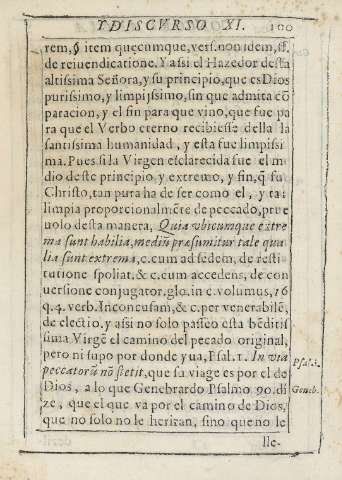 Y DISCVRSO XI. 100
rem, § item quęcumque, vers. non idem, ff.
de reiuendicatione. Y assi el Hazedor desta
altissima Señora, y su principio, que es Dios
purissimo, y limpijssimo, sin que admita cõ
paracion, y el fin para que vino, que fue pa
ra que el Verbo eterno recibiesse della la
santissima humanidad, y esta fue limpissi
ma. Pues si la Virgen esclarecida fue el me
dio deste principio y extremo, y fin, q̃ fu
Christo, tan pura ha de ser como el, y tan
limpia proporcionalmẽte de peccado, prue
uolo desta manera, Quia vbicumque extre
ma sunt habilia, mediũ præsumitur tale qua
lia sunt extrema, c. cum ad sedem, de resti
tutione spoliat. & c. cum accedens, de con
uersione conjugator. glo. in c. volumus, 16
q. 4. verb. Inconcusam, & c. per venerabilẽ,
de electio. y assi no solo passeo esta bẽditis
sima Virgẽ el camino del pecado original,
pero ni supo por donde yua, Psal. 1. In via
peccatorũ nõ stetit, que su viage es por el de
Psal. 1.
Dios, a lo que Genebrardo Psalmo 90. di
Geneb.
ze, que el que va por el camino de Dios,
que no solo no le heriran, sino que no le
lle-